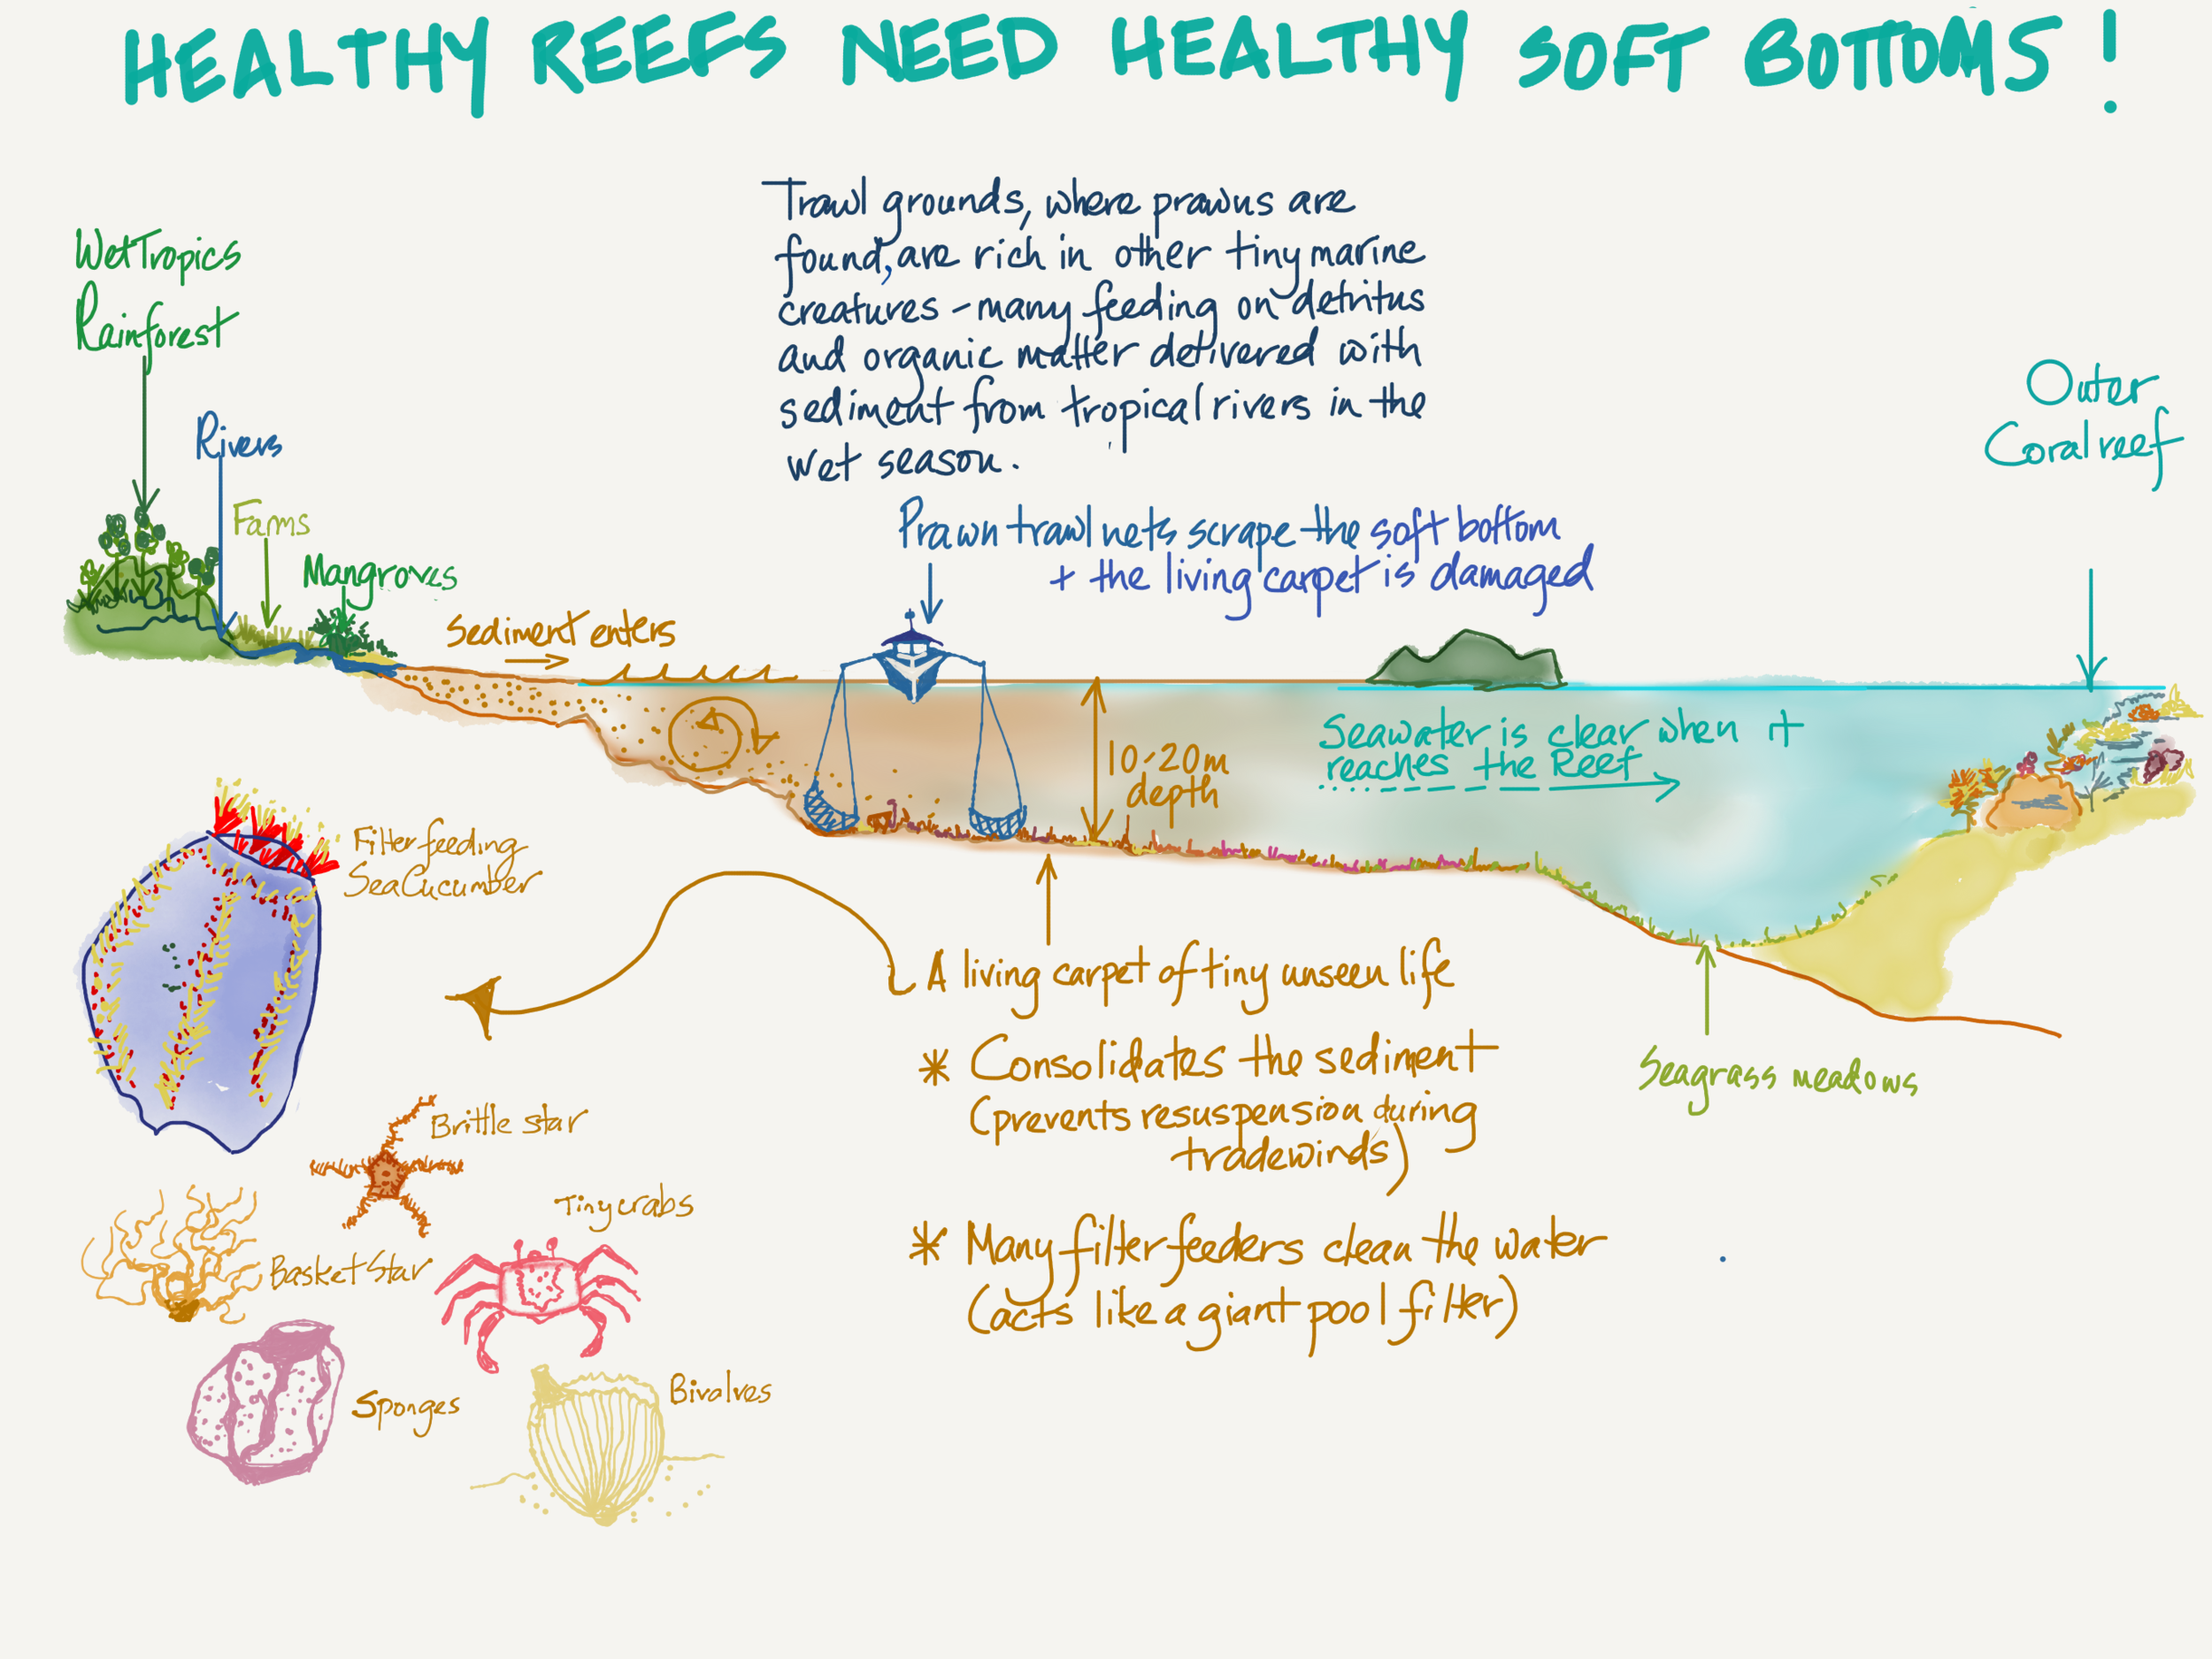 HEALTHY REEFS NEED HEALTHY SOFT BOTTOMS!
Trawl grounds, where prawns are
found, are rich in other tiny marine
creatures - many feeding on detritus
and organic matter delivered with
sediment from tropical rivers in the
wet season.
Wet Tropics
Rainforest
Rivers
Farms
Mangroves
Sediment enters
Prawn trawl nets scrape the soft bottom
+ the living carpet is damaged
Outer
Coral reef
10-20m
depth
Seawater is clear when it
reaches the Reef
Filter feeding
Sea Cucumber
A living carpet of tiny unseen life
* Consolidates the sediment
(prevents resuspension during
tradewinds)
* Many filter feeders clean the water
(acts like a giant pool filter)
Seagrass meadows
Brittle star
Tiny crabs
Basket Star
Sponges
Bivalves